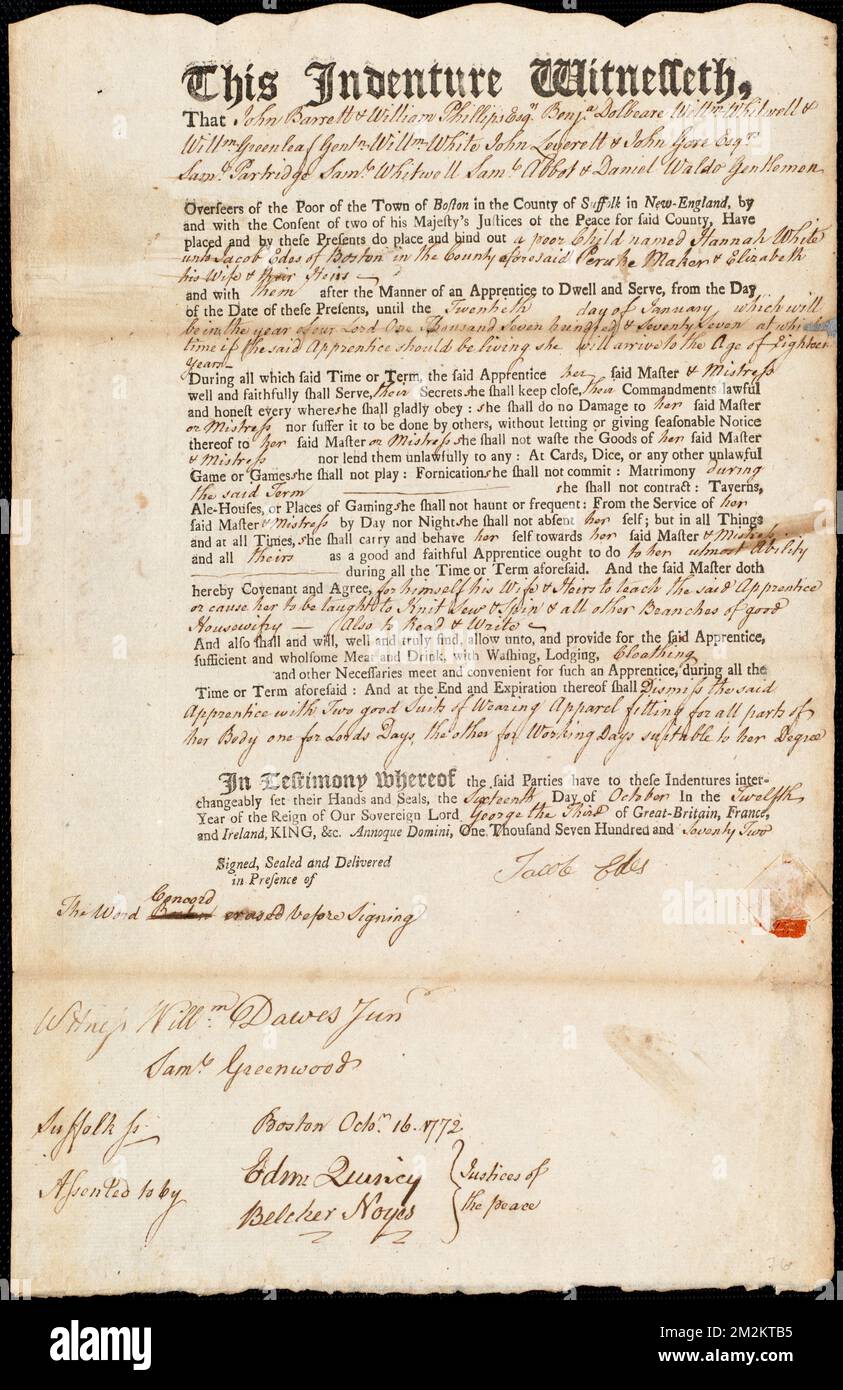 This Indenture Witnesseth,
That John Barrett & William Phillips Esqrs. Benja. Dolbeare Willm. Whitwell &
Willm. Greenleaf Gentn. Willm. White John Leverett & John Gore Esqrs.
Saml. Partridge Saml. Whitwell Saml. Abbot & Daniel Waldo Gentlemen
Overseers of the Poor of the Town of Boston in the County of Suffolk in New-England, by
and with the Consent of two of his Majesty's Justices of the Peace for said County, Have
placed and by these Presents do place and bind out a poor Child named Hannah White
unto Jacob Edes of Boston in the County aforesaid Peruke Maker & Elizabeth
his Wife & their Heirs
and with them after the Manner of an Apprentice to Dwell and Serve, from the Day
of the Date of these Presents, until the Twentieth day of January which will
be in the year of our Lord One Thousand Seven hundred & Seventy Seven at which
time if the said Apprentice should be living she will arrive to the Age of Eighteen
Years
During all which said Time or Term, the said Apprentice her said Master & Mistress
well and faithfully shall Serve, their Secrets she shall keep close, their Commandments lawful
and honest every where she shall gladly obey: she shall do no Damage to her said Master
or Mistress nor suffer it to be done by others, without letting or giving seasonable Notice
thereof to her said Master or Mistress she shall not waste the Goods of her said Master
& Mistress nor lend them unlawfully to any: At Cards, Dice, or any other unlawful
Game or Games she shall not play: Fornication she shall not commit: Matrimony during
the said Term she shall not contract: Taverns,
Ale-Houses, or Places of Gaming she shall not haunt or frequent: From the Service of her
said Master & Mistress by Day nor Night she shall not absent her self; but in all Things
and at all Times, she shall carry and behave her self towards her said Master & Mistress
and all theirs as a good and faithful Apprentice ought to do to her utmost Ability
during all the Time or Term aforesaid. And the said Master doth
hereby Covenant and Agree, for himself his Wife & Heirs to teach the said Apprentice
or cause her to be taught to Knit Sew & Spin & all other Branches of good
Housewifry — Also to Read & Write
And also shall and will, well and truly find, allow unto, and provide for the said Apprentice,
sufficient and wholsome Meat and Drink, with Washing, Lodging, Cloathing
and other Necessaries meet and convenient for such an Apprentice, during all the
Time or Term aforesaid: And at the End and Expiration thereof shall Dismiss the said
Apprentice with Two good Suits of Wearing Apparel fitting for all parts of
her Body one for Lords Days, the other for Working Days suitable to her Degree
In Testimony whereof the said Parties have to these Indentures inter-
changeably set their Hands and Seals, the Sixteenth Day of October In the Twelfth
Year of the Reign of Our Sovereign Lord George the Third of Great-Britain, France,
and Ireland, KING, &c. Annoque Domini, One Thousand Seven Hundred and Seventy Two
Signed, Sealed and Delivered
in Presence of
Jacob Edes
Concord
The Word Boston erased before Signing
Witness Willm. Dawes Junr
Saml. Greenwood
Suffolk ss. Boston Octor. 16. 1772
Assented to by Edm: Quincy Justices of
Belcher Noyes the peace
76
alamy
Image ID: 2M2KTB5
www.alamy.com